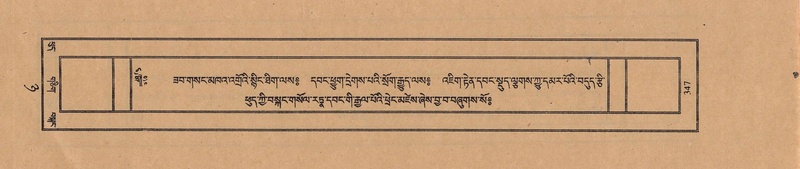 ཟབ་གསང་མཁའ་འགྲོའི་སྙིང་ཐིག་ལས༔ དབང་ཕྱུག་དྲེགས་པའི་སྲོག་རྒྱུད་ལས༔ འཇིག་རྟེན་དབང་སྡུད་ལྕགས་ཀྱུ་དམར་པོའི་བདུད་རྩི་
ཕུད་ཀྱི་བསྐང་གསོལ་རཏྣ་དབང་གི་རྒྱལ་པོའི་ཕྲེང་མཛེས་ཞེས་བྱ་བ་བཞུགས་སོ༔
གཅིག
347